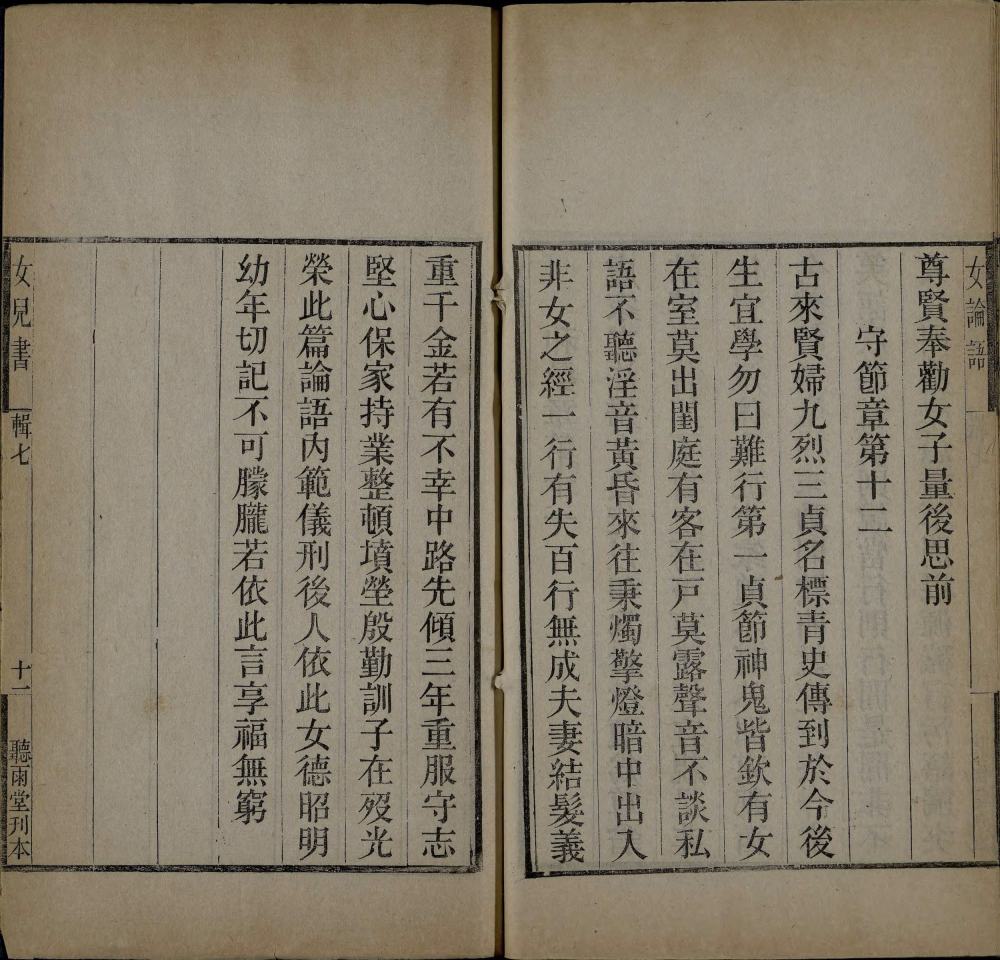 女論語
尊賢奉勸女子量後思前
守節章第十二
古來賢婦九烈三貞名標青史傳到於今後
生宜學勿曰難行第一貞節神鬼皆欽有女
在室莫出閨庭有客在戸莫露聲音不談私
語不聽淫音黃昏來往秉燭擎燈暗中出入
非女之經一行有失百行無成夫妻結髮義
重千金若有不幸中路先傾三年重服守志
堅心保家持業整頓墳塋殷勤訓子在歿光
榮此篇論語內範儀刑後人依此女德昭明
幼年切記不可朦朧若依此言享福無窮
女兒書 輯七 十一 聽雨堂刊本